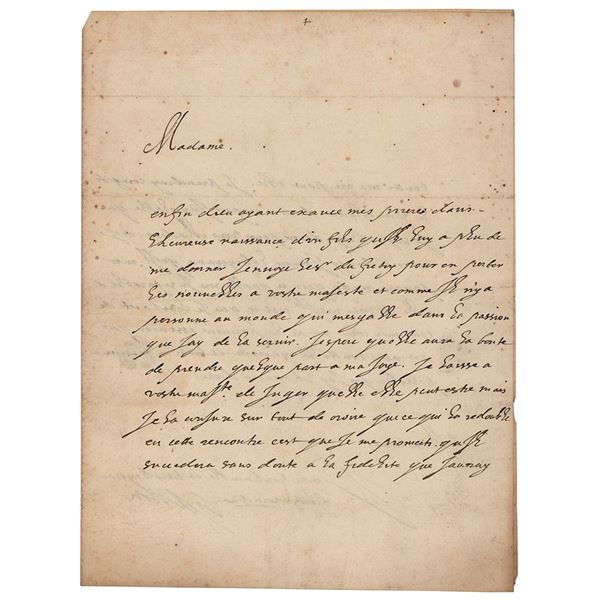 Madame.
enfin dieu ayant exaucé mes prieres dans
l'heureuse naissance d'un fils qu'il luy a pleu de
me donner J'envoye le sr. du fretoy pour en porter
les nouvelles a vostre majesté et comme Il n'y a
personne au monde qui m'esgalle dans la passion
que J'ay de la servir. J'espere quelle aura la bonté
de prendre quelque part a ma Joye. Je laisse a
vostre majté. de Juger quelle elle peut estre mais
Je la conjure sur tout de croire que ce qui la redouble
en cette rencontre c'est que Je me promects qu'Il
succedera sans doute a la fidelité que J'auray